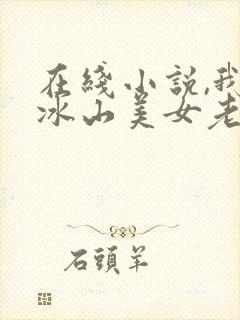 在綫小説,我
冰山美女老
石頭羊